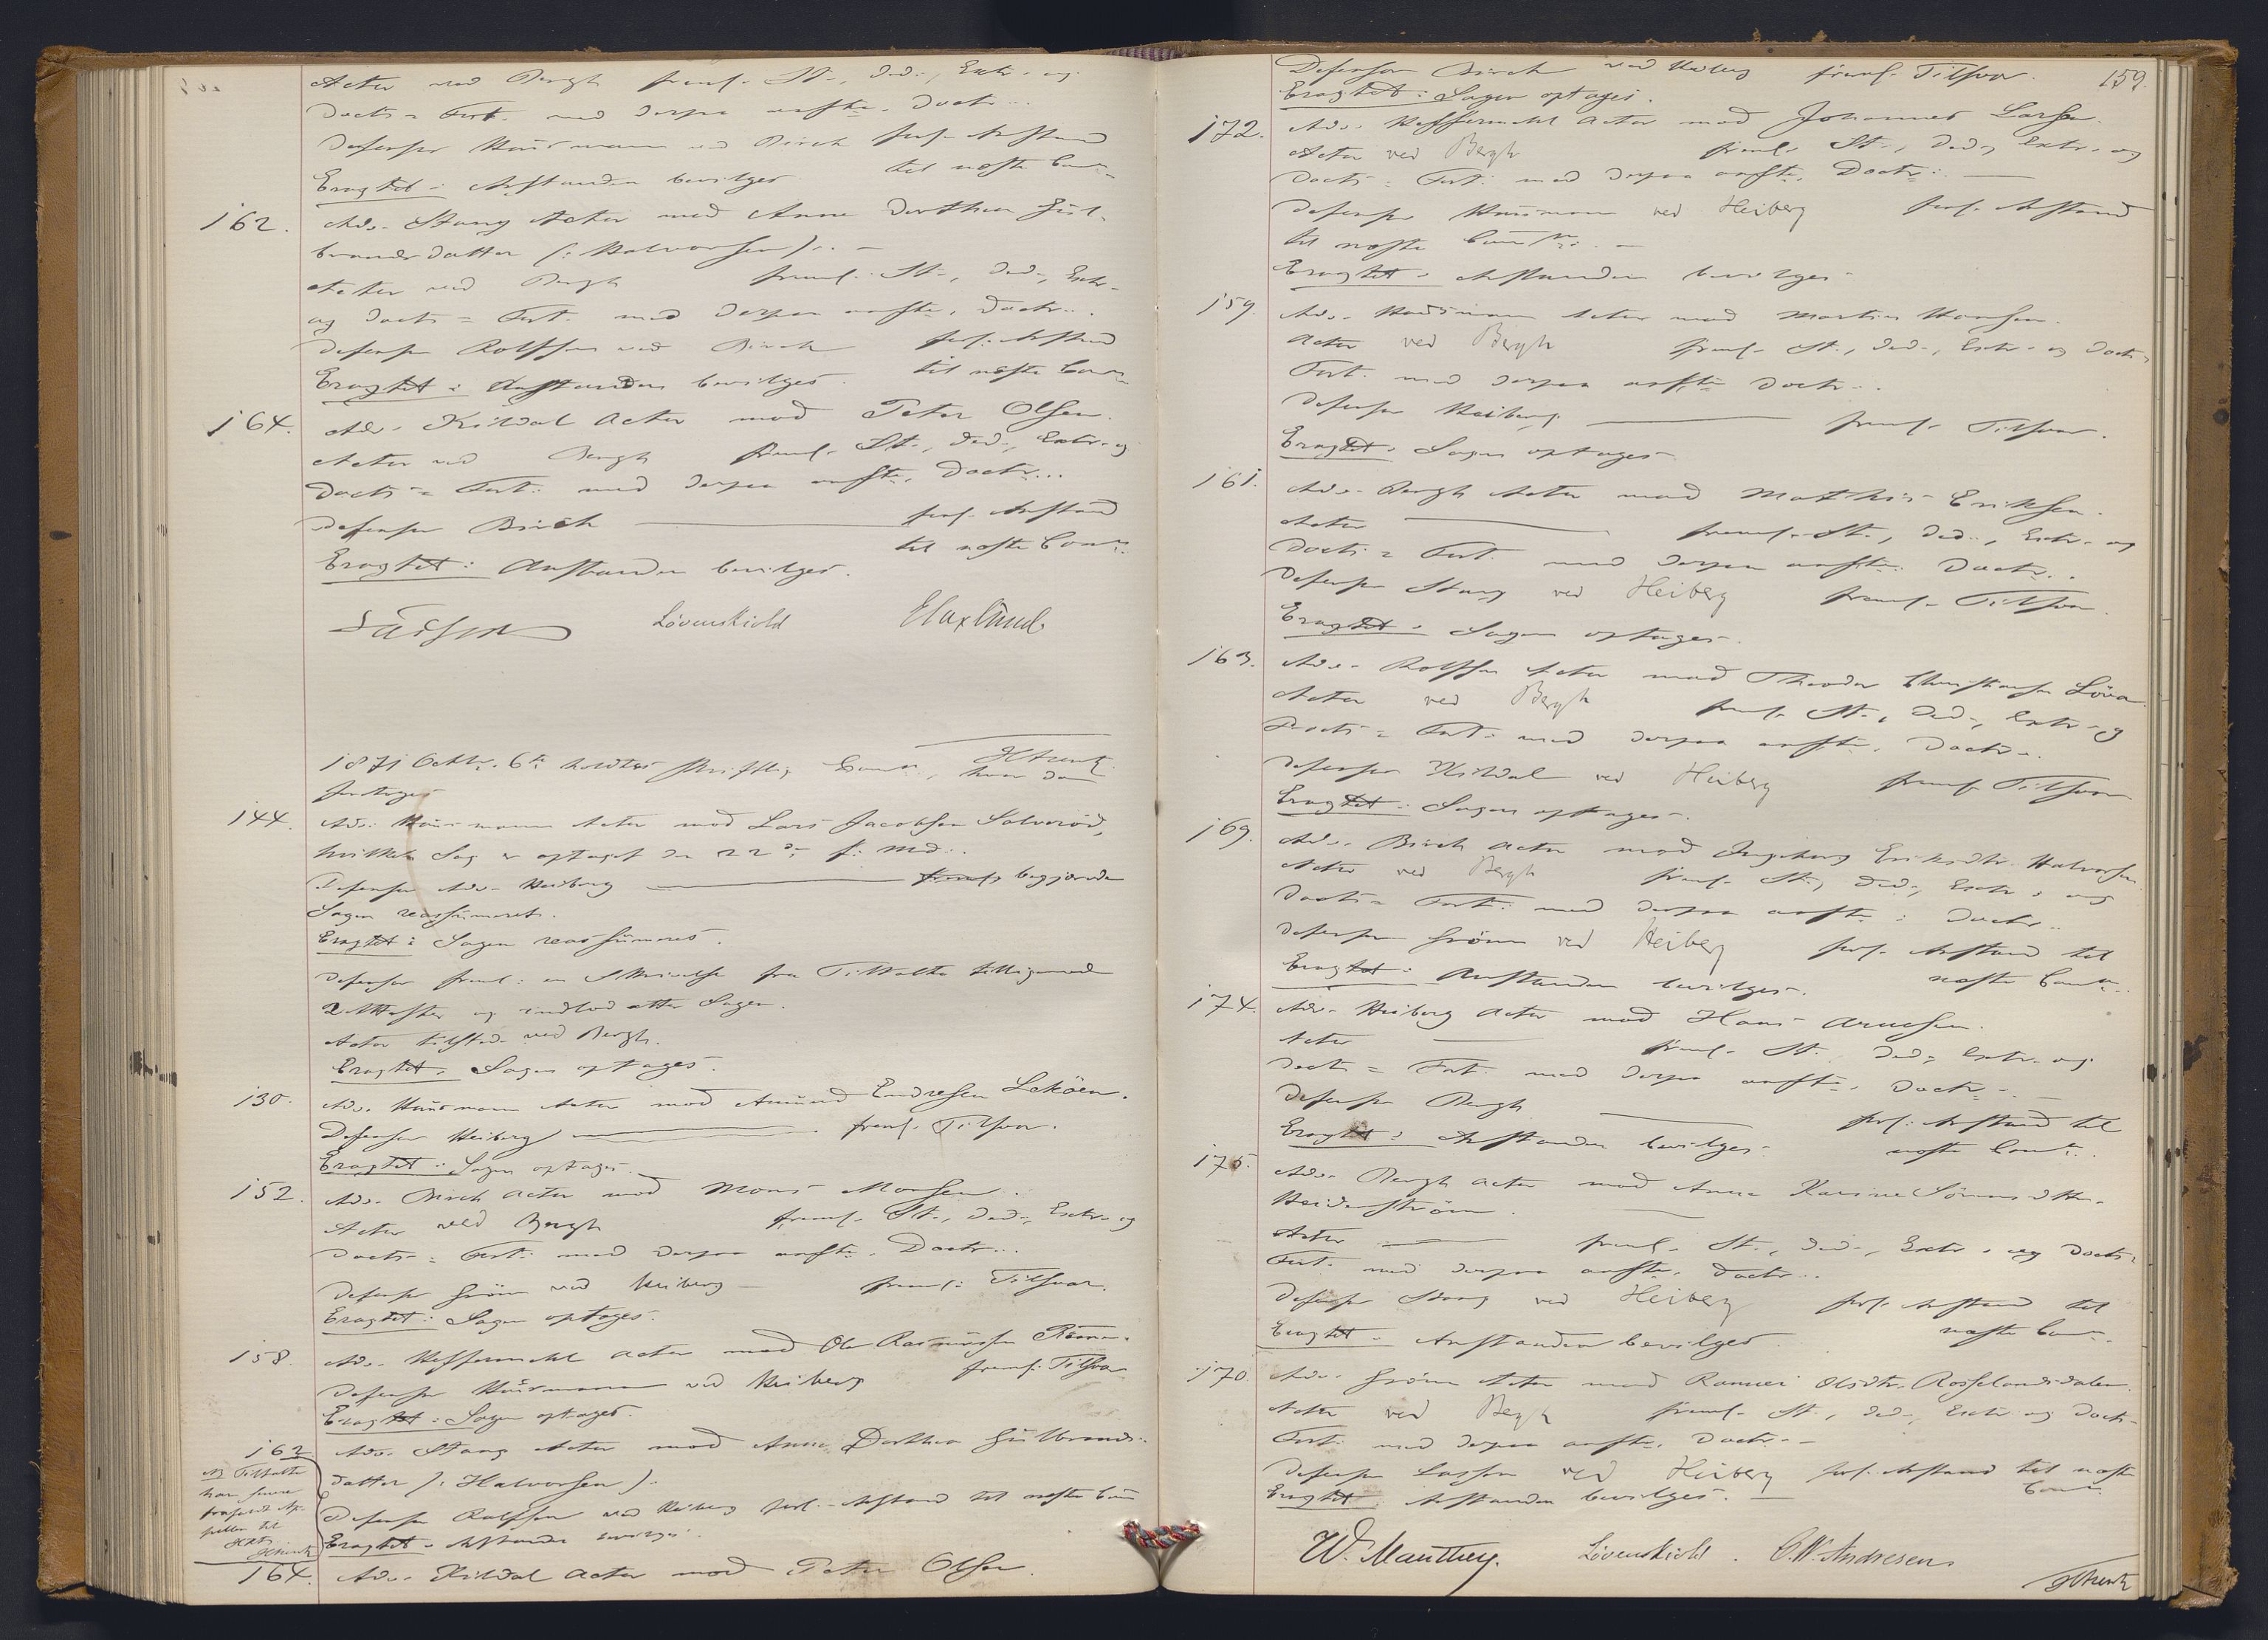 Actor ved Bergh freml. St., Ded., Extr. og
Docts = Fort. med derpaa anfte. Doctr..
Defensor Husmann ved Birch forl. Anstand
Eragtet: Anstanden bevilges. til næste Com.
162. Adv. Stang Actor mod Anne Dorthea Gul-
brandsdatter (: Halvorsen). -
Actor ved Bergh freml. St., Ded., Extr.
og Docts = Fort. med derpaa anfte. Doctr..
Defensor Rolfsen ved Birch forl. Anstand
Eragtet: Anstanden bevilges. til næste Com.
164. Adv. Kildal Actor mod Peter Olsen.
Actor ved Bergh freml. St., Ded., Extr. og
Docts = Fort. med derpaa anfte. Doctr...
Defensor Birch forl. Anstand
til næste Com.
Eragtet: Anstanden bevilges.
Løvenskiold
1871 Octbr. 6te holdtes skriftlig Com., hvor da
foretoges
144. Adv. Husmann Actor mod Lars Jacobsen Solverød,
hvilken Sag er optaget den 22de f. Md..
Defensor Adv. Heiberg begjærede
Sagen reassumeret.
Eragtet: Sagen reassumeres.
Defensor freml. en Skrivelse fra Tiltalte tilligemed
2 Attester og indlod atter Sagen.
Actor tilstede ved Bergh.
Eragtet: Sagen optages.
130. Adv. Husmann Actor mod Amund Endresen Lekøen.
Defensor Heiberg freml. Tilsvar.
Eragtet: Sagen optages.
152. Adv. Birch Actor mod Mons Monsen.
Actor ved Bergh freml. St., Ded., Extr. og
Docts = Fort. med derpaa anfte. Doctr...
Defensor Grøn ved Heiberg - freml. Tilsvar.
Eragtet: Sagen optages.
158. Adv. Hessermehl Actor mod Ole Rasmussen
Defensor Husmann ved Heiberg freml. Tilsvar
Eragtet: Sagen optages.
162 Adv. Stang Actor mod Anne Dorthea Gulbrands-
NB Tiltalte
datter (: Halvorsen).
Defensor Rolfsen ved Heiberg forl. Anstand til næste Com
Eragtet: Anstanden bevilges.
164. Adv. Kildal Actor mod Peter Olsen.
159.
Defensor Birch ved Heiberg freml. Tilsvar.
Eragtet: Sagen optages.
172. Adv. Hessermehl Actor mod Johannes Larsen.
Actor ved Bergh freml. St., Ded., Extr. og
Docts = Fort. med derpaa anfte. Doctr.. -
Defensor Husmann ved Heiberg forl. Anstand
til næste Com. -
Eragtet: Anstanden bevilges.
159. Adv. Husmann Actor mod Martin Hansen.
Actor ved Bergh freml. St., Ded., Extr. og Docts =
Fort. med derpaa anfte Doctr..
Defensor Heiberg freml. Tilsvar.
Eragtet: Sagen optages.
161. Adv. Bergh Actor mod Mathis Eriksen.
Actor freml. St., Ded., Extr. og
Docts = Fort. med derpaa anfte. Doctr..
Defensor Stang ved Heiberg freml. Tilsvar.
Eragtet: Sagen optages.
163. Adv. Rolfsen Actor mod Theodor Christensen Löva
Actor ved Bergh freml. St., Ded., Extr. og
Docts = Fort. med derpaa anfte. Doctr..
Defensor Kildal ved Heiberg freml. Tilsvar
Eragtet: Sagen optages.
169. Adv. Birch Actor mod Ingeborg Eriksdtr. Halvorsen
Actor ved Bergh freml. St., Ded., Extr. og
Docts = Fort. med derpaa anfte. Doctr..
Defensor Grøn ved Heiberg forl. Anstand til
Eragtet: Anstanden bevilges. næste Com.
174. Adv. Heiberg Actor mod Hans Arnesen.
Actor freml. St., Ded., Extr. og
Docts = Fort. med derpaa anfte. Doctr.. -
Defensor Bergh forl. Anstand til
Eragtet: Anstanden bevilges. næste Com.
175. Adv. Bergh Actor mod Anne Karine Sörensdtr.
Heidenström.
Actor freml. St., Ded., Extr. og Docts =
Fort. med derpaa anfte. Doctr..
Defensor Stang ved Heiberg forl. Anstand til
Eragtet: Anstanden bevilges. næste Com.
170. Adv. Grøn Actor mod Rannei Olsdtr. Rosselandsdalen.
Actor ved Bergh freml. St., Ded., Extr. og Docts =
Fort. med derpaa anfte. Doctr.. -
Defensor Lasson ved Heiberg forl. Anstand til næste
Eragtet: Anstanden bevilges. - Com.
W. Manthey. Løvenskiold. C.W. Andresen.